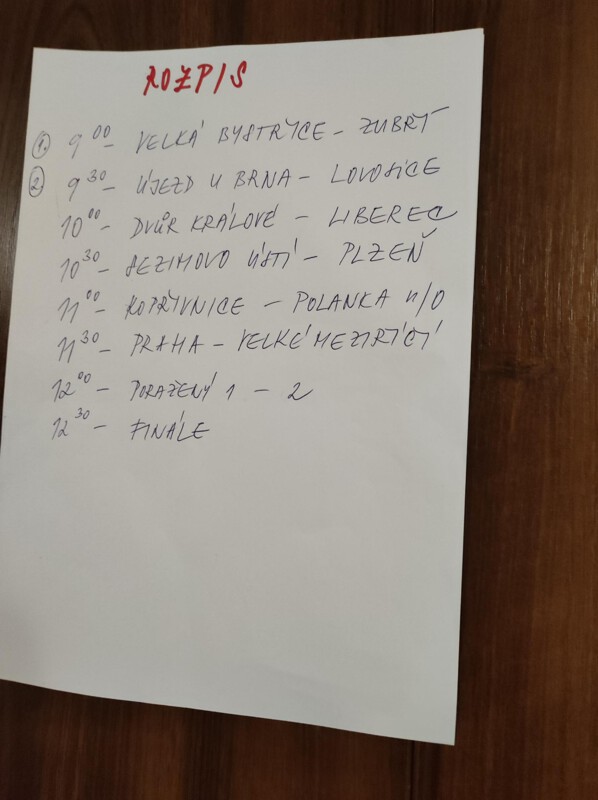 ROZPIS
1. 9 00 - VELKÁ BYSTŘICE - ZUBŘÍ
2. 9 30 - ÚJEZD U BRNA - LOVOSICE
10 00 - DVŮR KRÁLOVÉ - LIBEREC
10 30 - SEZIMOVO ÚSTÍ - PLZEŇ
11 00 - KOPŘIVNICE - POLANKA n/O
11 30 - PRAHA - VELKÉ MEZIŘÍČÍ
12 00 - PORAŽENÝ 1 - 2
12 30 - FINÁLE